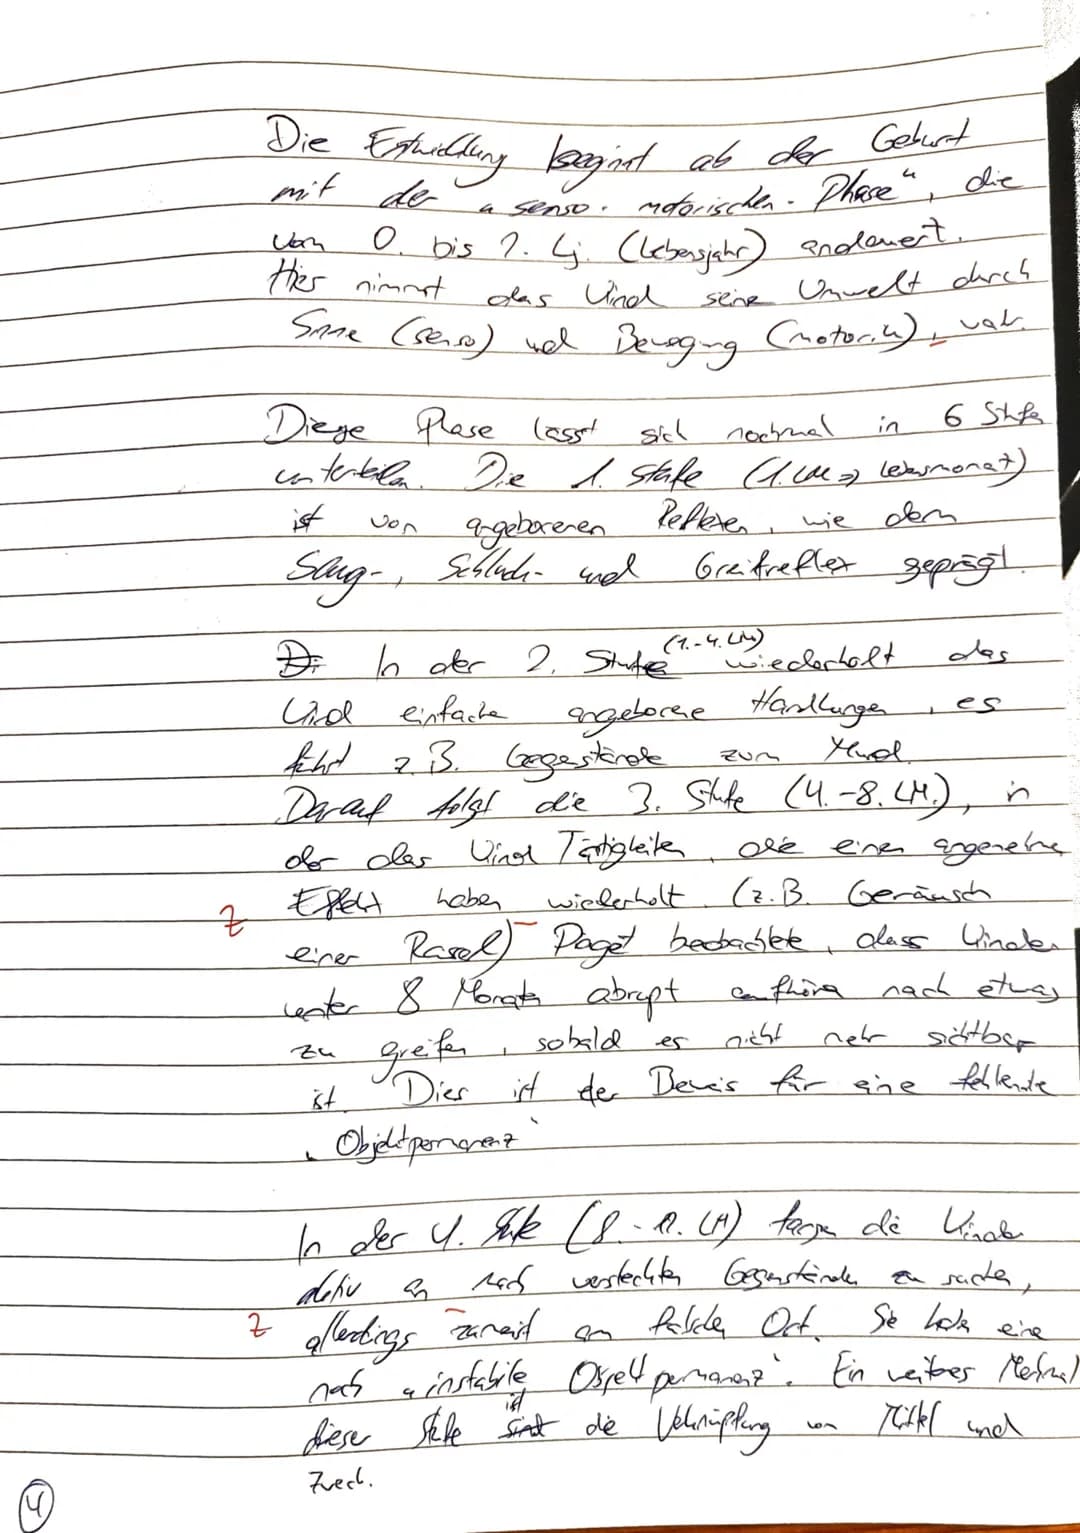 Die Entwicklung beginnt ab der Geburt
mit der "senso-motorischen-Phase", die
vom 0. bis 2. Lj. (Lebensjahr) andauert.
Hier nimmt das Kind seine Umwelt durch
Sinne (senso) und Bewegung (motorik), wahr.
Diese Phase lässt sich nochmal in 6 Stufen
unterteilen. Die 1. Stufe (1. LM => Lebensmonat)
ist von angeborenen Reflexen, wie dem
Saug-, Schluck- und Greifreflex geprägt.
In der 2. Stufe (1.-4. LM) wiederholt das
Kind einfache angeborene Handlungen, es
führt z.B. Gegenstände zum Mund.
Darauf folgt die 3. Stufe (4.-8. LM.), in
der das Kind Tätigkeiten, die einen angenehmen
Effekt haben wiederholt. (z.B. Geräusch
Z
einer Rassel) Piaget beobachtete, dass Kinder
unter 8 Monaten abrupt aufhören nach etwas
zu greifen, sobald es nicht mehr sichtbar
ist. Dies ist der Beweis für eine fehlende
"Objektpermanenz"
In der 4. Stufe (8.-12. LM) fangen die Kinder
aktiv an nach versteckten Gegenständen zu suchen,
Z allerdings zumeist am falschen Ort. Sie haben eine
noch "instabile Objektpermanenz". Ein weiteres Merkmal
dieser Stufe ist die Verknüpfung von Mittel und
Zweck.
4